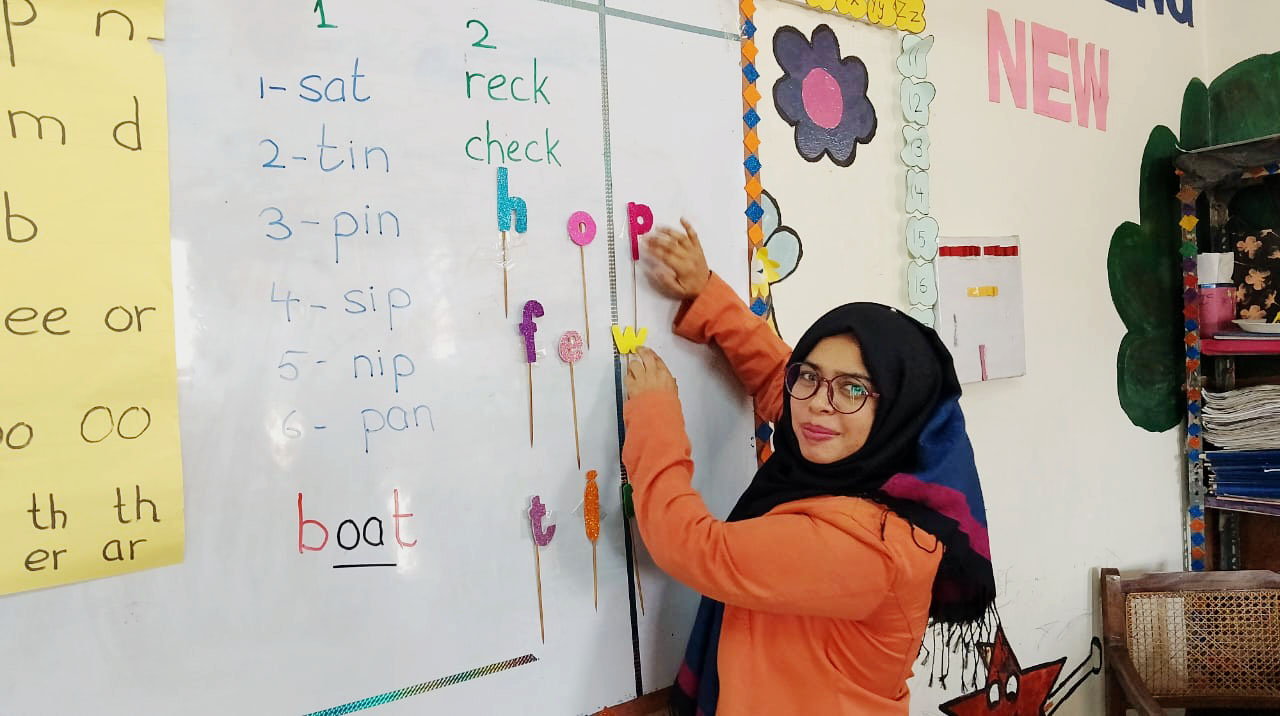 p n
m d
b
ee or
oo OO
th th
er ar
1
1-sat
2-tin
3-pin
4-sip
5-nip
6-pan
boat
2
reck
check
h o p
f e w
t i
Zz
12
13
14
15
16
NEW